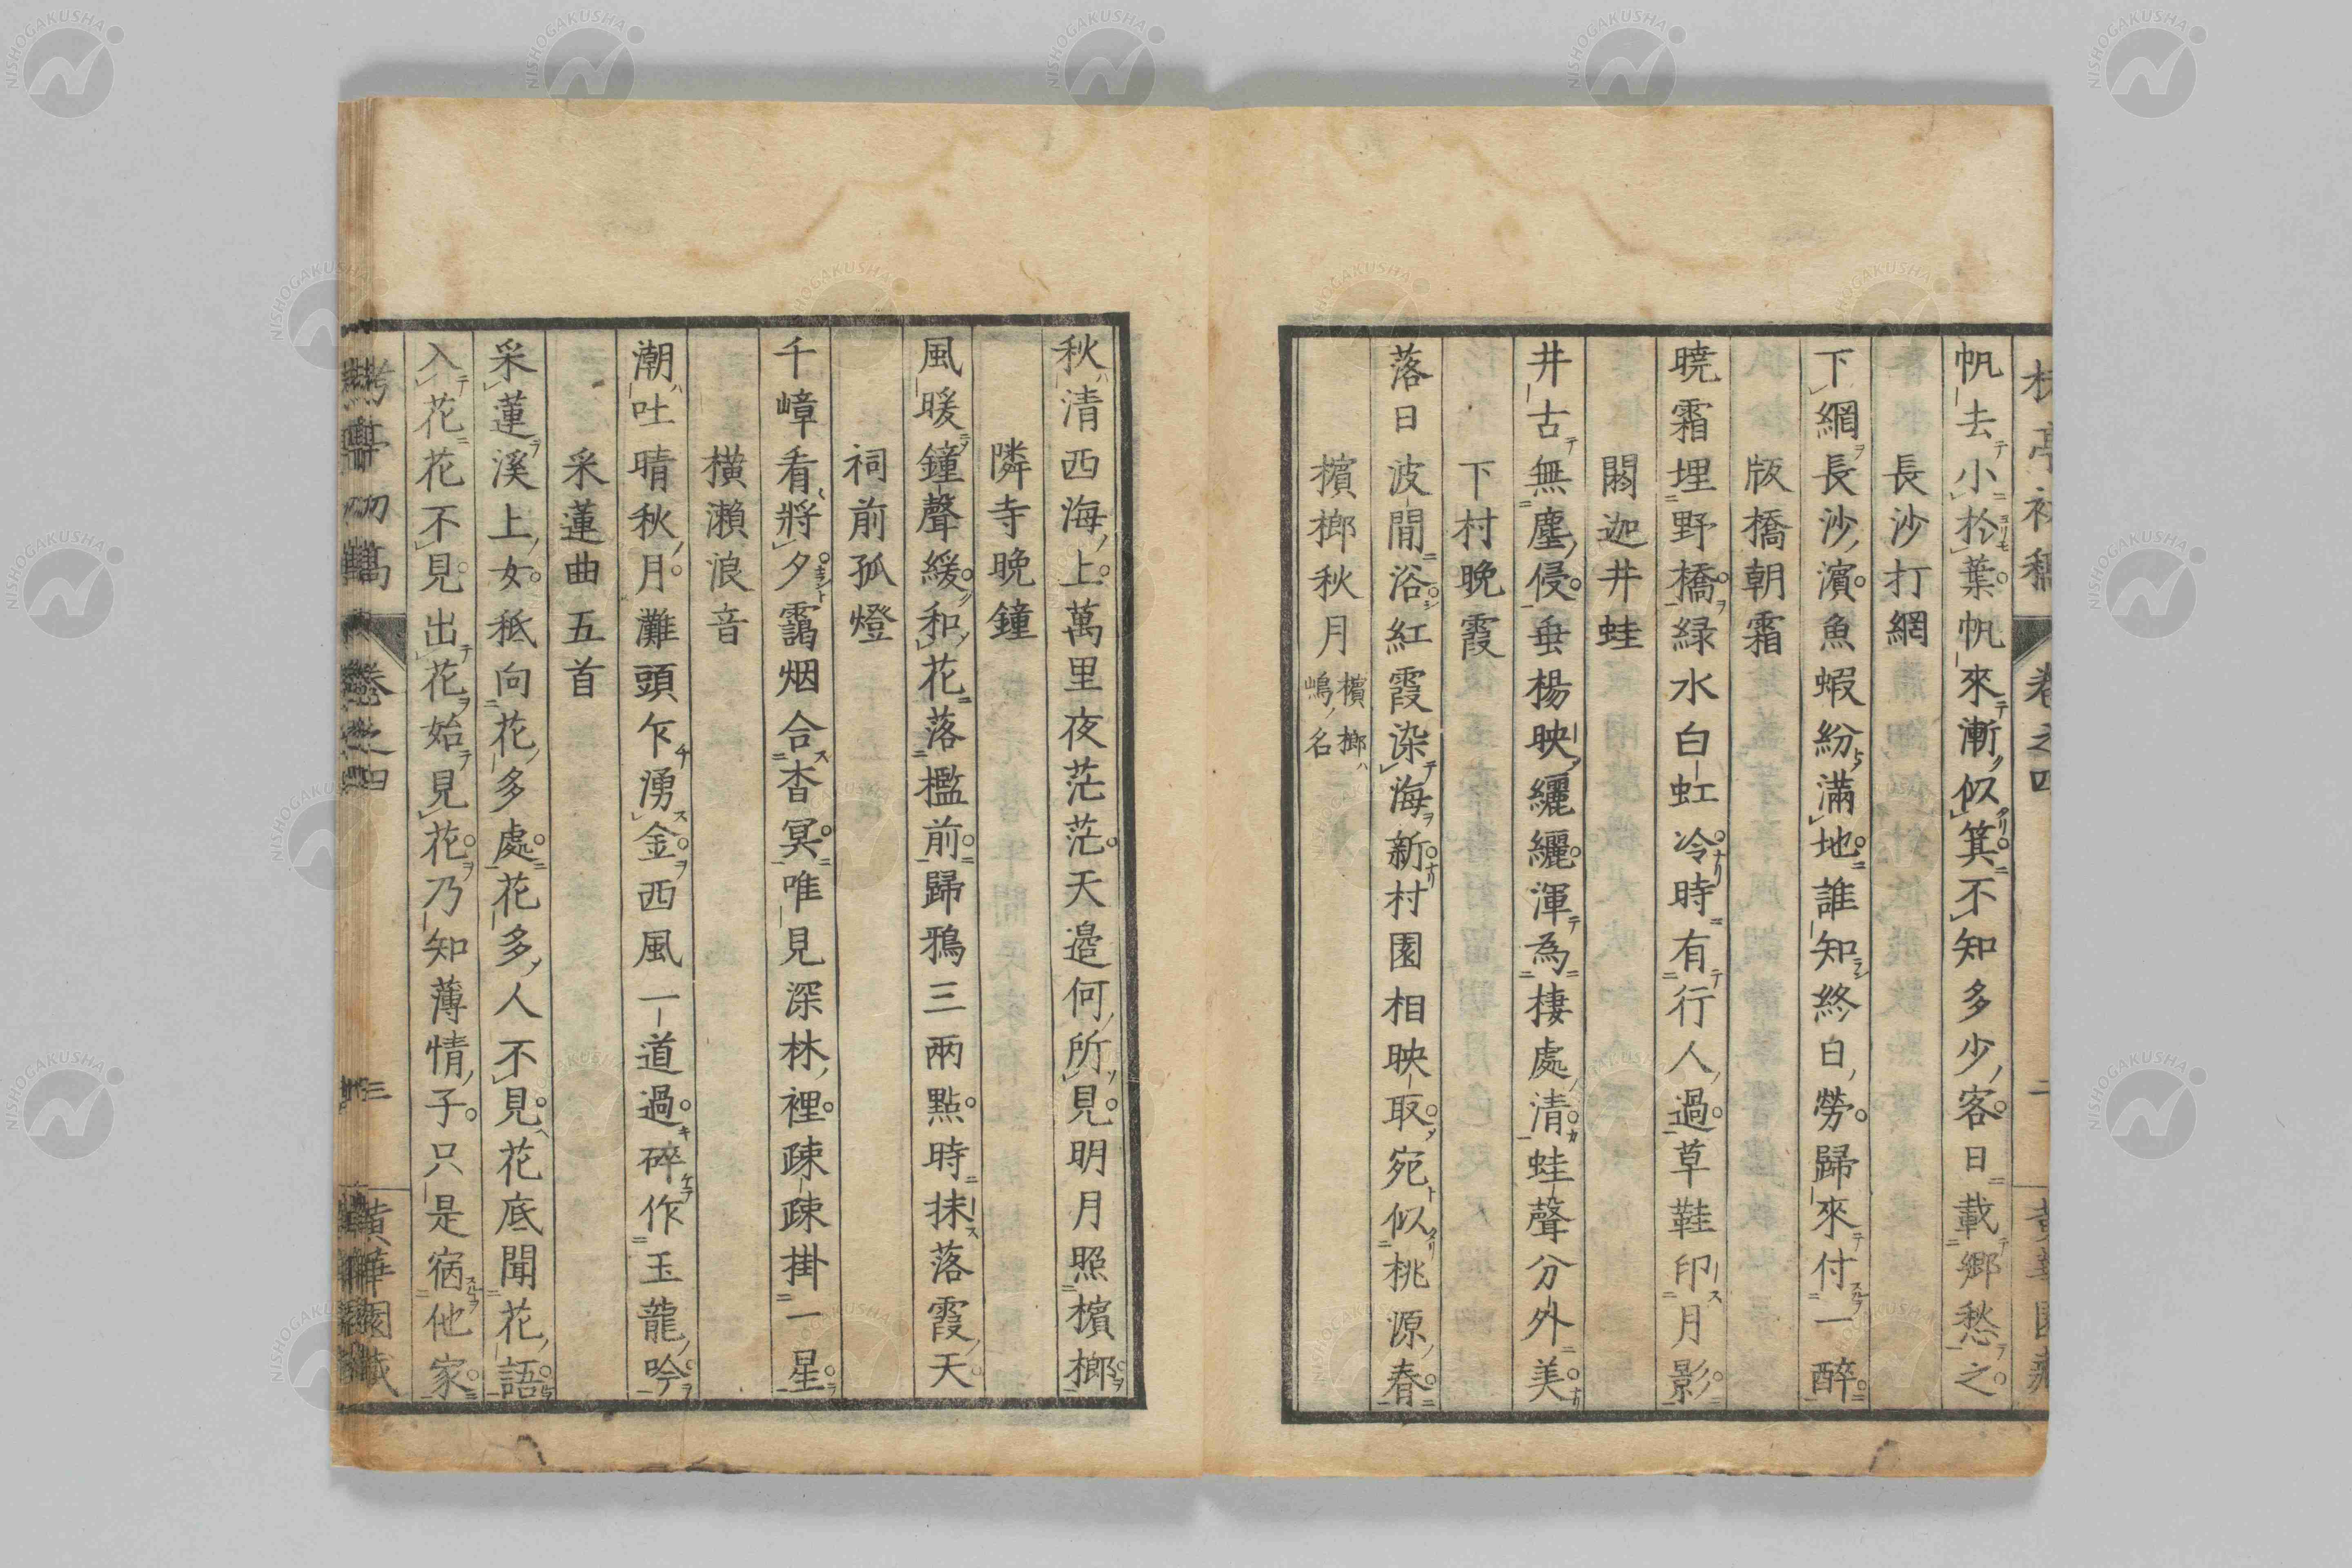 帆去小於葉帆來漸似箕不知多少客日載郷愁之
長沙打網
下網長沙濱魚蝦紛滿地誰知終日勞歸來付一醉
版橋朝霜
曉霜埋野橋緑水白虹冷時有行人過草鞋印月影
閼迦井蛙
井古無塵侵垂楊映纚纚渾為棲處清蛙聲分外美
下村晩霞
落日波間浴紅霞染海新村園相映取宛似桃源春
檳榔秋月 檳榔ハ嶋ノ名
秋清西海上萬里夜茫茫天邉何所見明月照檳榔
隣寺晩鐘
風暖鐘聲緩和花落檻前歸鴉三兩點時抹落霞天
祠前孤燈
千嶂看將夕靄烟合杳冥唯見深林裡疎疎掛一星
横瀬浪音
潮吐晴秋月灘頭乍湧金西風一道過碎作玉龍吟
采蓮曲五首
采蓮溪上女秖向花多處花多人不見花底聞花語
入花花不見出花始見花乃知薄情子只是宿他家
卷之四
三
黄華園藏
NISHOGAKUSHA